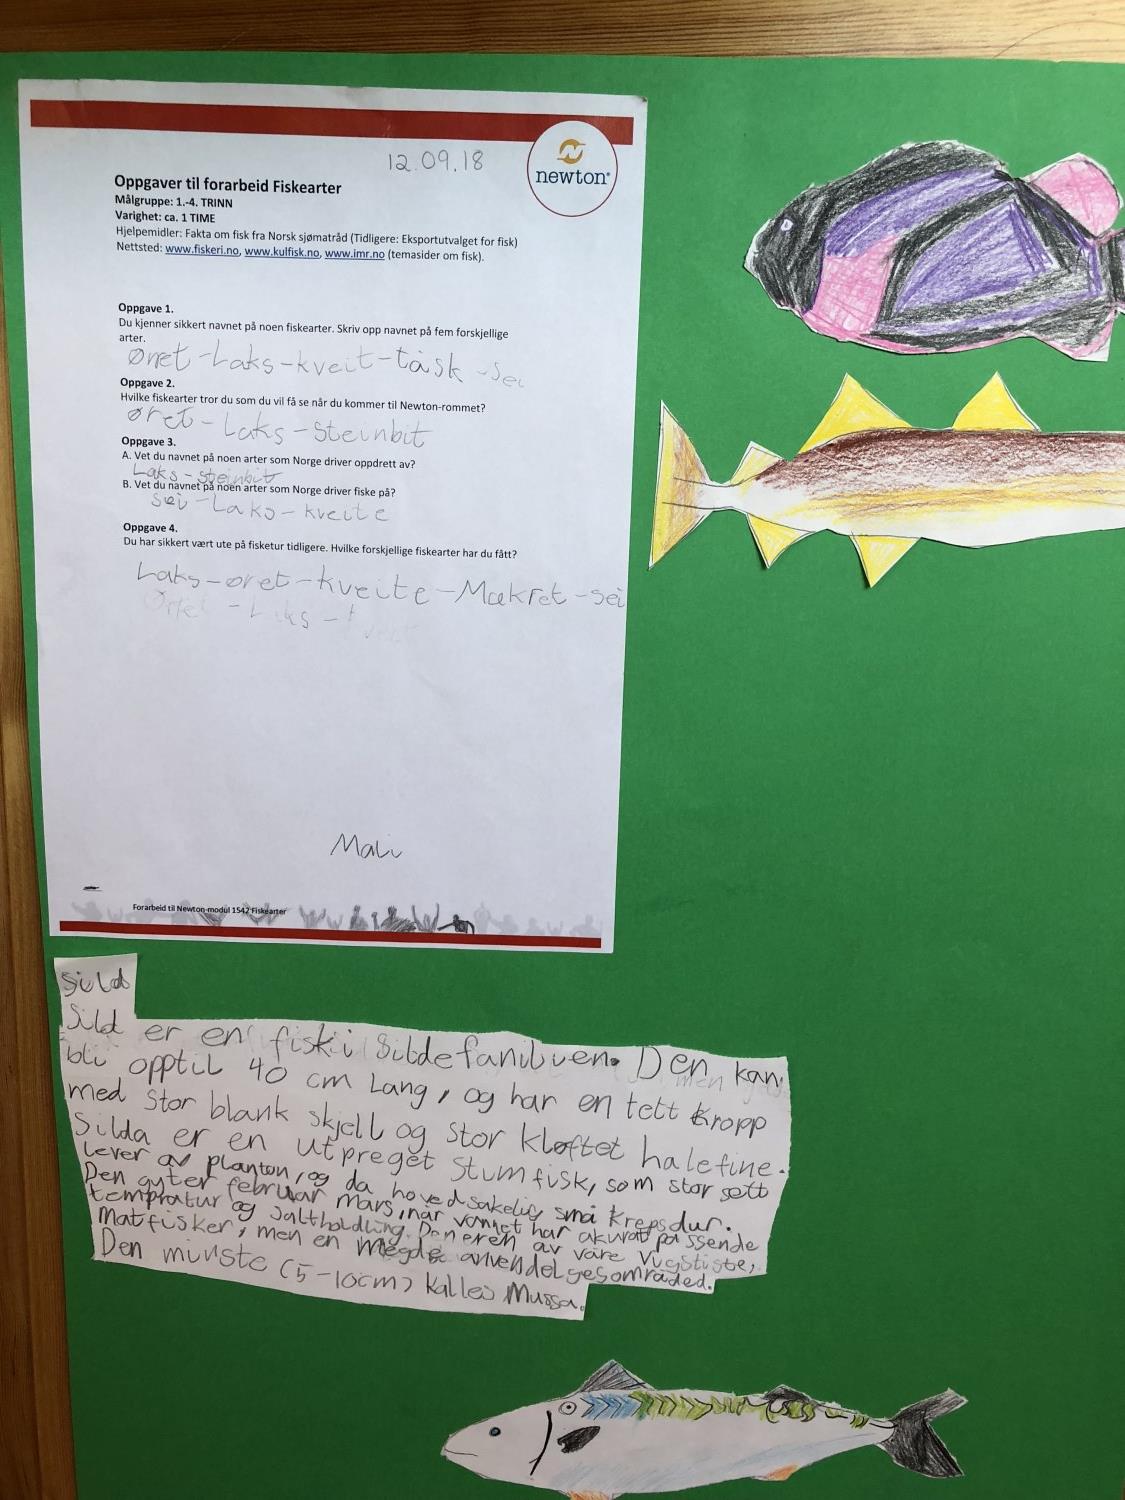 12.09.18
newton
Oppgaver til forarbeid Fiskearter
Målgruppe: 1.-4. TRINN
Varighet: ca. 1 TIME
Hjelpemidler: Fakta om fisk fra Norsk sjømatråd (Tidligere: Eksportutvalget for fisk)
Nettsted: www.fiskeri.no, www.kulfisk.no, www.imr.no (temasider om fisk).
Oppgave 1.
Du kjenner sikkert navnet på noen fiskearter. Skriv opp navnet på fem forskjellige
arter.
Øret-Laks-kveit-tåsk-sei
Oppgave 2.
Hvilke fiskearter tror du som du vil få se når du kommer til Newton-rommet?
øret-Laks-steinbit
Oppgave 3.
A. Vet du navnet på noen arter som Norge driver oppdrett av?
Laks-steinbit
B. Vet du navnet på noen arter som Norge driver fiske på?
sei-Laks-kveite
Oppgave 4.
Du har sikkert vært ute på fisketur tidligere. Hvilke forskjellige fiskearter har du fått?
Laks-øret-kveite-Makret-sei
Mali
Forarbeid til Newton-modul 1542 Fiskearter
Sild
Sild er en fisk i Sildefamiliuen. Den kan
bli opptil 40 cm Lang, og har en tett kropp
med stor blank skjell og stor kløftet halefine.
Silda er en utpreget stumfisk, som stor sett
lever av planton, og da hovedsakelig små krepsdur.
Den gyter februar mars, når vannet har akurat passende
tempratur og saltholdling. Den er en av våre vigstiste,
matfisker, men en megde anvendelgesområded.
Den minste (5-10cm) kalles Mussa.